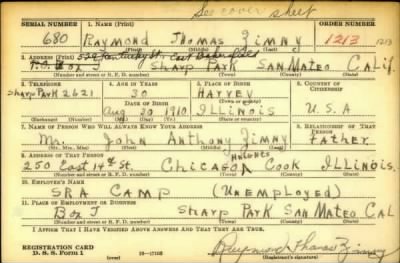 See cover sheet
SERIAL NUMBER 1. NAME (Print) ORDER NUMBER
680 Raymond Thomas Zimny 1213 1213
(First) (Middle) (Last)
2. ADDRESS (Print)
P.O. Box J Sharp Park San Mateo Calif
(Number and street or R. F. D. number) (Town) (County) (State)
3. TELEPHONE 4. AGE IN YEARS 5. PLACE OF BIRTH 6. COUNTRY OF CITIZENSHIP
Sharp Park 2621 30 Harvey
DATE OF BIRTH (Town or county)
Aug 30 1910 Illinois U.S.A
(Exchange) (Number) (Mo.) (Day) (Yr.) (State or country)
7. NAME OF PERSON WHO WILL ALWAYS KNOW YOUR ADDRESS 8. RELATIONSHIP OF THAT PERSON
Mr. John Anthony Zimny Father
(Mr., Mrs., Miss) (First) (Middle) (Last)
9. ADDRESS OF THAT PERSON
250 East 14th St. Chicago Heights Cook Illinois
(Number and street or R. F. D. number) (Town) (County) (State)
10. EMPLOYER'S NAME
SRA Camp (Unemployed)
11. PLACE OF EMPLOYMENT OR BUSINESS
Box J Sharp Park San Mateo Cal
(Number and street or R. F. D. number) (Town) (County) (State)
I AFFIRM THAT I HAVE VERIFIED ABOVE ANSWERS AND THAT THEY ARE TRUE.
REGISTRATION CARD
D. S. S. Form 1 16—17105 Raymond Thomas Zimny
(Registrant's signature)